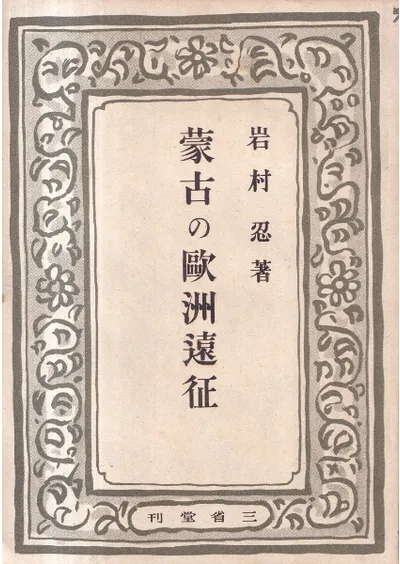 岩村忍著
蒙古の歐洲遠征
三省堂刊